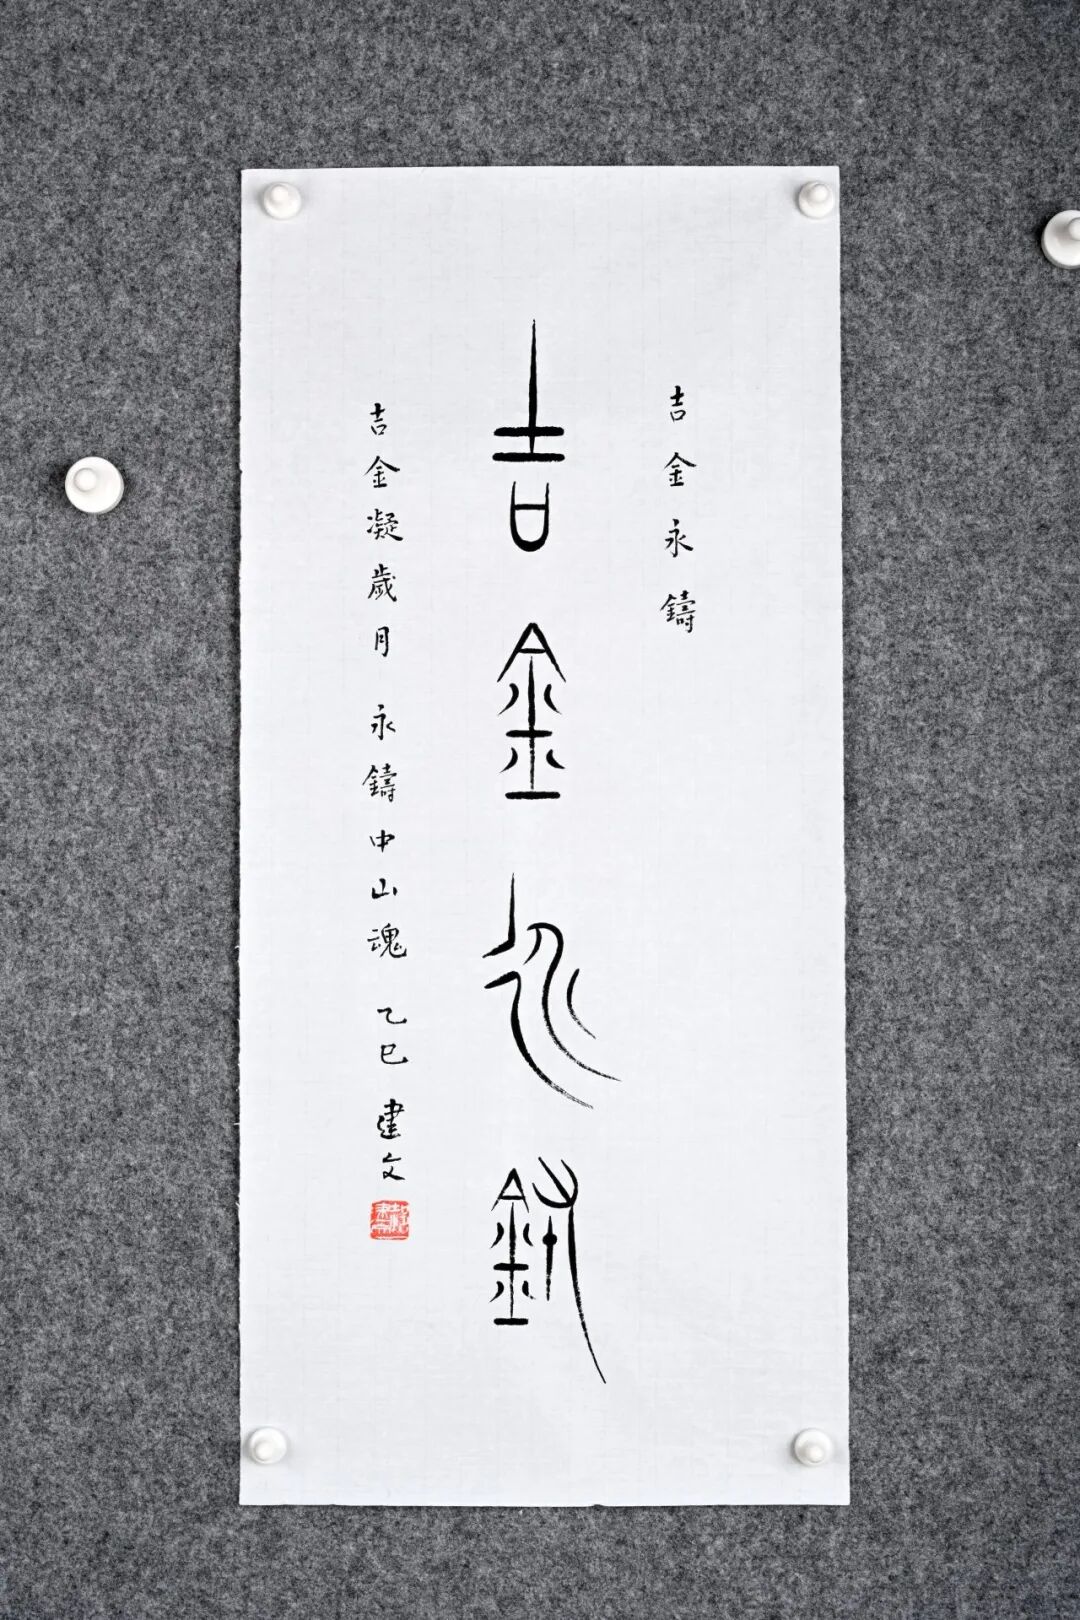 吉金永鑄
吉金永鑄
吉金凝歲月 永鑄中山魂 乙巳 建文